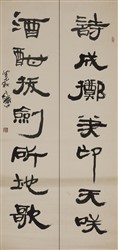 詩成擲筆仰天咲
酒酣拔劍斫地歌